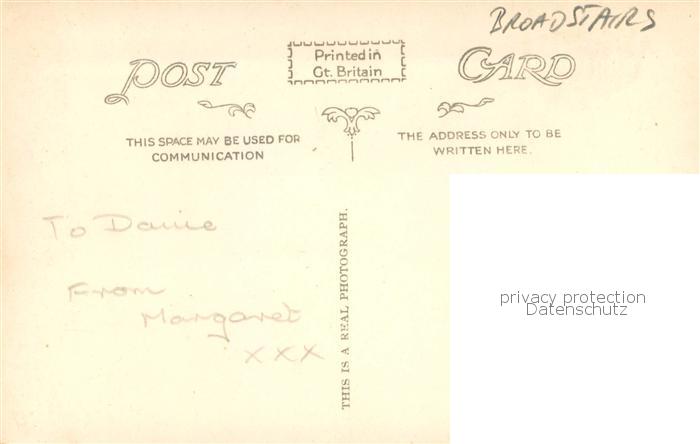 BROADSTAIRS
POST CARD
Printed in
Gt. Britain
THIS SPACE MAY BE USED FOR
COMMUNICATION
THE ADDRESS ONLY TO BE
WRITTEN HERE.
To
From
Margaret
XXX
THIS IS A REAL PHOTOGRAPH.
privacy protection
Datenschutz